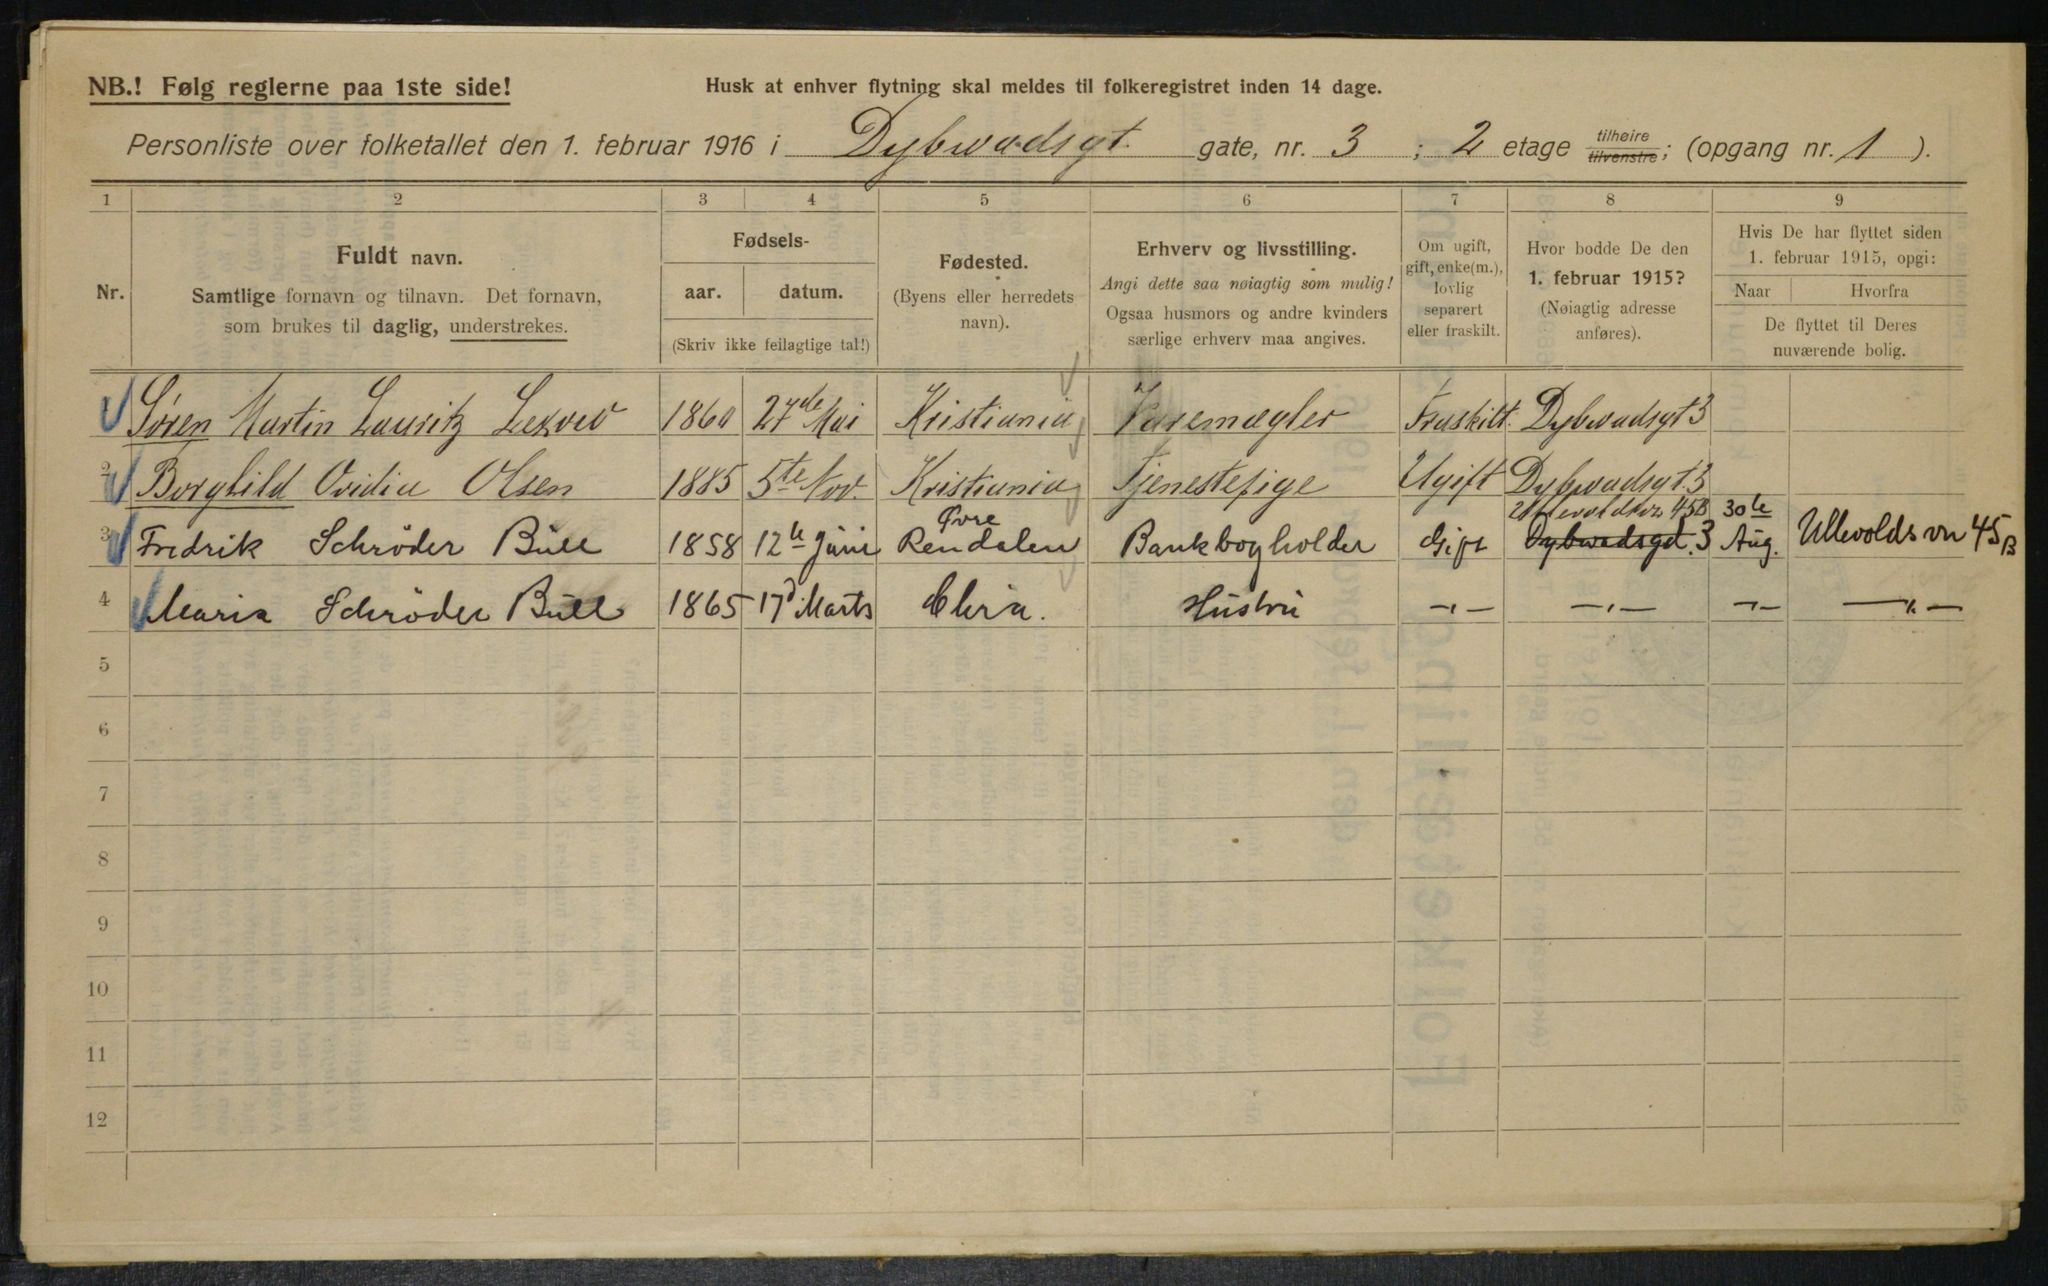 NB.! Følg reglerne paa 1ste side!
Husk at enhver flytning skal meldes til folkeregistret inden 14 dage.
Personliste over folketallet den 1. februar 1916 i Dybwadsgt. gate, nr. 3 ; 2 etage tilhøire tilvenstre; (opgang nr. 1 ).
1 2 3 4 5 6 7 8 9
Nr.
Fuldt navn.
Samtlige fornavn og tilnavn. Det fornavn,
som brukes til daglig, understrekes.
Fødsels-
aar. datum.
(Skriv ikke feilagtige tal!)
Fødested.
(Byens eller herredets
navn).
Erhverv og livsstilling.
Angi dette saa nøiagtig som mulig!
Ogsaa husmors og andre kvinders
særlige erhverv maa angives.
Om ugift,
gift, enke(m.),
lovlig
separert
eller fraskilt.
Hvor bodde De den
1. februar 1915?
(Nøiagtig adresse
anføres).
Hvis De har flyttet siden
1. februar 1915, opgi:
Naar Hvorfra
De flyttet til Deres
nuværende bolig.
Søren Martin Lauritz Lexow 1860 27de Mai Kristiania Varemægler Fraskilt. Dybwadsgt 3
2 Borghild Ovidia Olsen 1885 5te Nov. Kristiania Tjenestepige Ugift Dybwadsgt. 3
Øvre Ullevoldsvn 45B 30te
3 Fredrik Schrøder Büll 1858 12te Juni Rendalen Bankbogholder Gift Dybwadsgd. 3 Aug. Ullevoldsvn 45B
4 Maria Schrøder Büll 1865 17d Marts Chria. Hustru —"— —"— —"— —"—
5
6
7
8
9
10
11
12